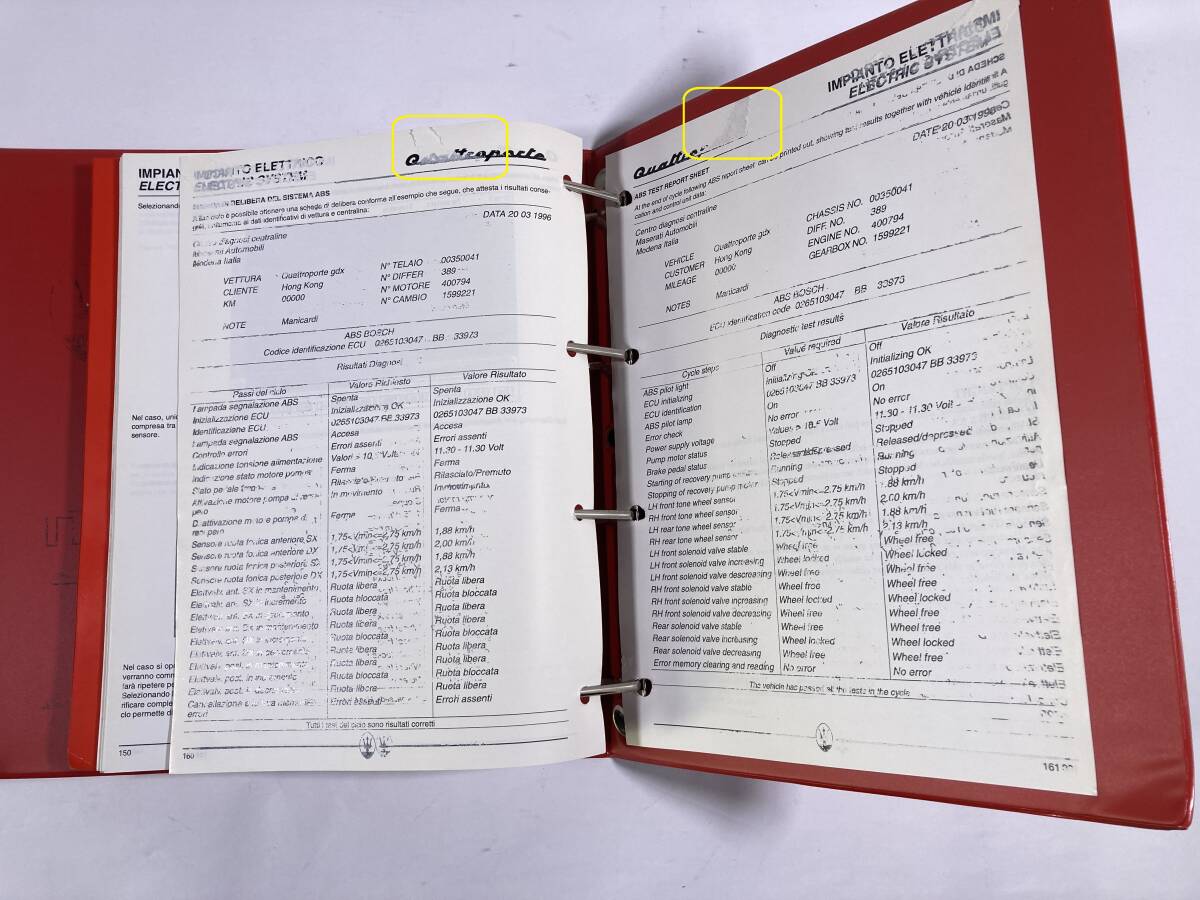 IMPIAN
ELECT
Selezionando
Nel caso, unic
compresa tra
sensore.
Nel caso si ope
verranno comm
farà ripetere po
Selezionando l
rificare comple
clo permette di
150
IMPIANTO ELETTRICO
SYSTEM
Quattroporte
DELIBERA DEL SISTEMA ABS
è possibile ottenere una scheda di delibera conforme all'esempio che segue, che attesta i risultati conse-
guiti, unitamente ai dati identificativi di vettura e centralina:
DATA 20 03 1996
Centro diagnosi centraline
Maserati Automobili
Modena Italia
VETTURA Quattroporte gdx N° TELAIO 00350041
CLIENTE Hong Kong N° DIFFER 389
KM 00000 N° MOTORE 400794
N° CAMBIO 1599221
NOTE Manicardi
ABS BOSCH
Codice identificazione ECU 0265103047 BB 33973
Risultati Diagnosi
Passi del ciclo Valore Richiesto Valore Risultato
Lampada segnalazione ABS Spenta Spenta
Inizializzazione ECU Inizializzazione OK Inizializzazione OK
Identificazione ECU 0265103047 BB 33973 0265103047 BB 33973
Lampada segnalazione ABS Accesa Accesa
Controllo errori Errori assenti Errori assenti
Indicazione tensione alimentazione Valori > 10, Volt 11.30 - 11.30 Volt
Indicazione stato motore pompa Ferma Ferma
Stato pedale freno Rilasciato/Premuto Rilasciato/Premuto
Attivazione motore pompa di recu-
pero In movimento In movimento
Disattivazione motore pompa di
recupero Ferma Ferma
Sensore ruota fonica anteriore SX 1,75<Vmin<=2,75 km/h 1,88 km/h
Sensore ruota fonica anteriore DX 1,75<Vmin<=2,75 km/h 2,00 km/h
Sensore ruota fonica posteriore SX 1,75<Vmin<=2,75 km/h 1,88 km/h
Sensore ruota fonica posteriore DX 1,75<Vmin<=2,75 km/h 2,13 km/h
Elettrovalv. ant. SX in mantenimento Ruota libera Ruota libera
Elettrovalv. ant. SX in incremento Ruota bloccata Ruota bloccata
Elettrovalv. ant. SX in decremento Ruota libera Ruota libera
Elettrovalv. ant. DX in mantenimento Ruota libera Ruota libera
Elettrovalv. ant. DX in incremento Ruota bloccata Ruota bloccata
Elettrovalv. ant. DX in decremento Ruota libera Ruota libera
Elettrovalv. post. in mantenimento Ruota libera Ruota libera
Elettrovalv. post. in incremento Ruota bloccata Ruota bloccata
Elettrovalv. post. in decremento Ruota libera Ruota libera
Cancellazione e lettura memoria
errori Errori assenti Errori assenti
Tutti i test del ciclo sono risultati corretti
160
IMPIANTO ELETTRICO
ELECTRIC SYSTEM
ABS TEST REPORT SHEET
At the end of cycle following ABS report sheet can be printed out, showing test results together with vehicle identifi-
cation and control unit data:
DATE 20 03 1996
Centro diagnosi centraline
Maserati Automobili
Modena Italia
VEHICLE Quattroporte gdx CHASSIS NO. 00350041
CUSTOMER Hong Kong DIFF. NO. 389
MILEAGE 00000 ENGINE NO. 400794
GEARBOX NO. 1599221
NOTES Manicardi
ABS BOSCH
ECU identification code 0265103047 BB 33973
Diagnostic test results
Cycle steps Value required Valore Risultato
ABS pilot light Off Off
ECU initializing Initializing OK Initializing OK
ECU identification 0265103047 BB 33973 0265103047 BB 33973
ABS pilot lamp On On
Error check No error No error
Power supply voltage Volt 11.30 - 11.30 Volt
Pump motor status Stopped Stopped
Brake pedal status Released/depressed Released/depressed
Starting of recovery pump motor Running Running
Stopping of recovery pump motor Stopped Stopped
LH front tone wheel sensor 1.75<Vmin<=2.75 km/h 1.88 km/h
RH front tone wheel sensor 1.75<Vmin<=2.75 km/h 2.00 km/h
LH rear tone wheel sensor 1.75<Vmin<=2.75 km/h 1.88 km/h
RH rear tone wheel sensor 1.75<Vmin<=2.75 km/h 2.13 km/h
LH front solenoid valve stable Wheel free Wheel free
LH front solenoid valve increasing Wheel locked Wheel locked
LH front solenoid valve descreasing Wheel free Wheel free
RH front solenoid valve stable Wheel free Wheel free
RH front solenoid valve increasing Wheel locked Wheel locked
RH front solenoid valve decreasing Wheel free Wheel free
Rear solenoid valve stable Wheel free Wheel free
Rear solenoid valve increasing Wheel locked Wheel locked
Rear solenoid valve decreasing Wheel free Wheel free
Error memory clearing and reeding No error No error
The vehicle has passed all the tests in the cycle
161